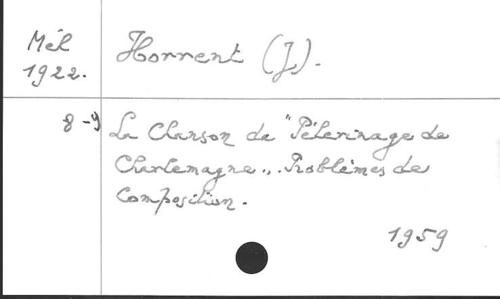 Mél
1922.
Horrent (J).
8-9
La Chanson de "Pèlerinage de
Charlemagne". Problèmes de
Composition.
1959